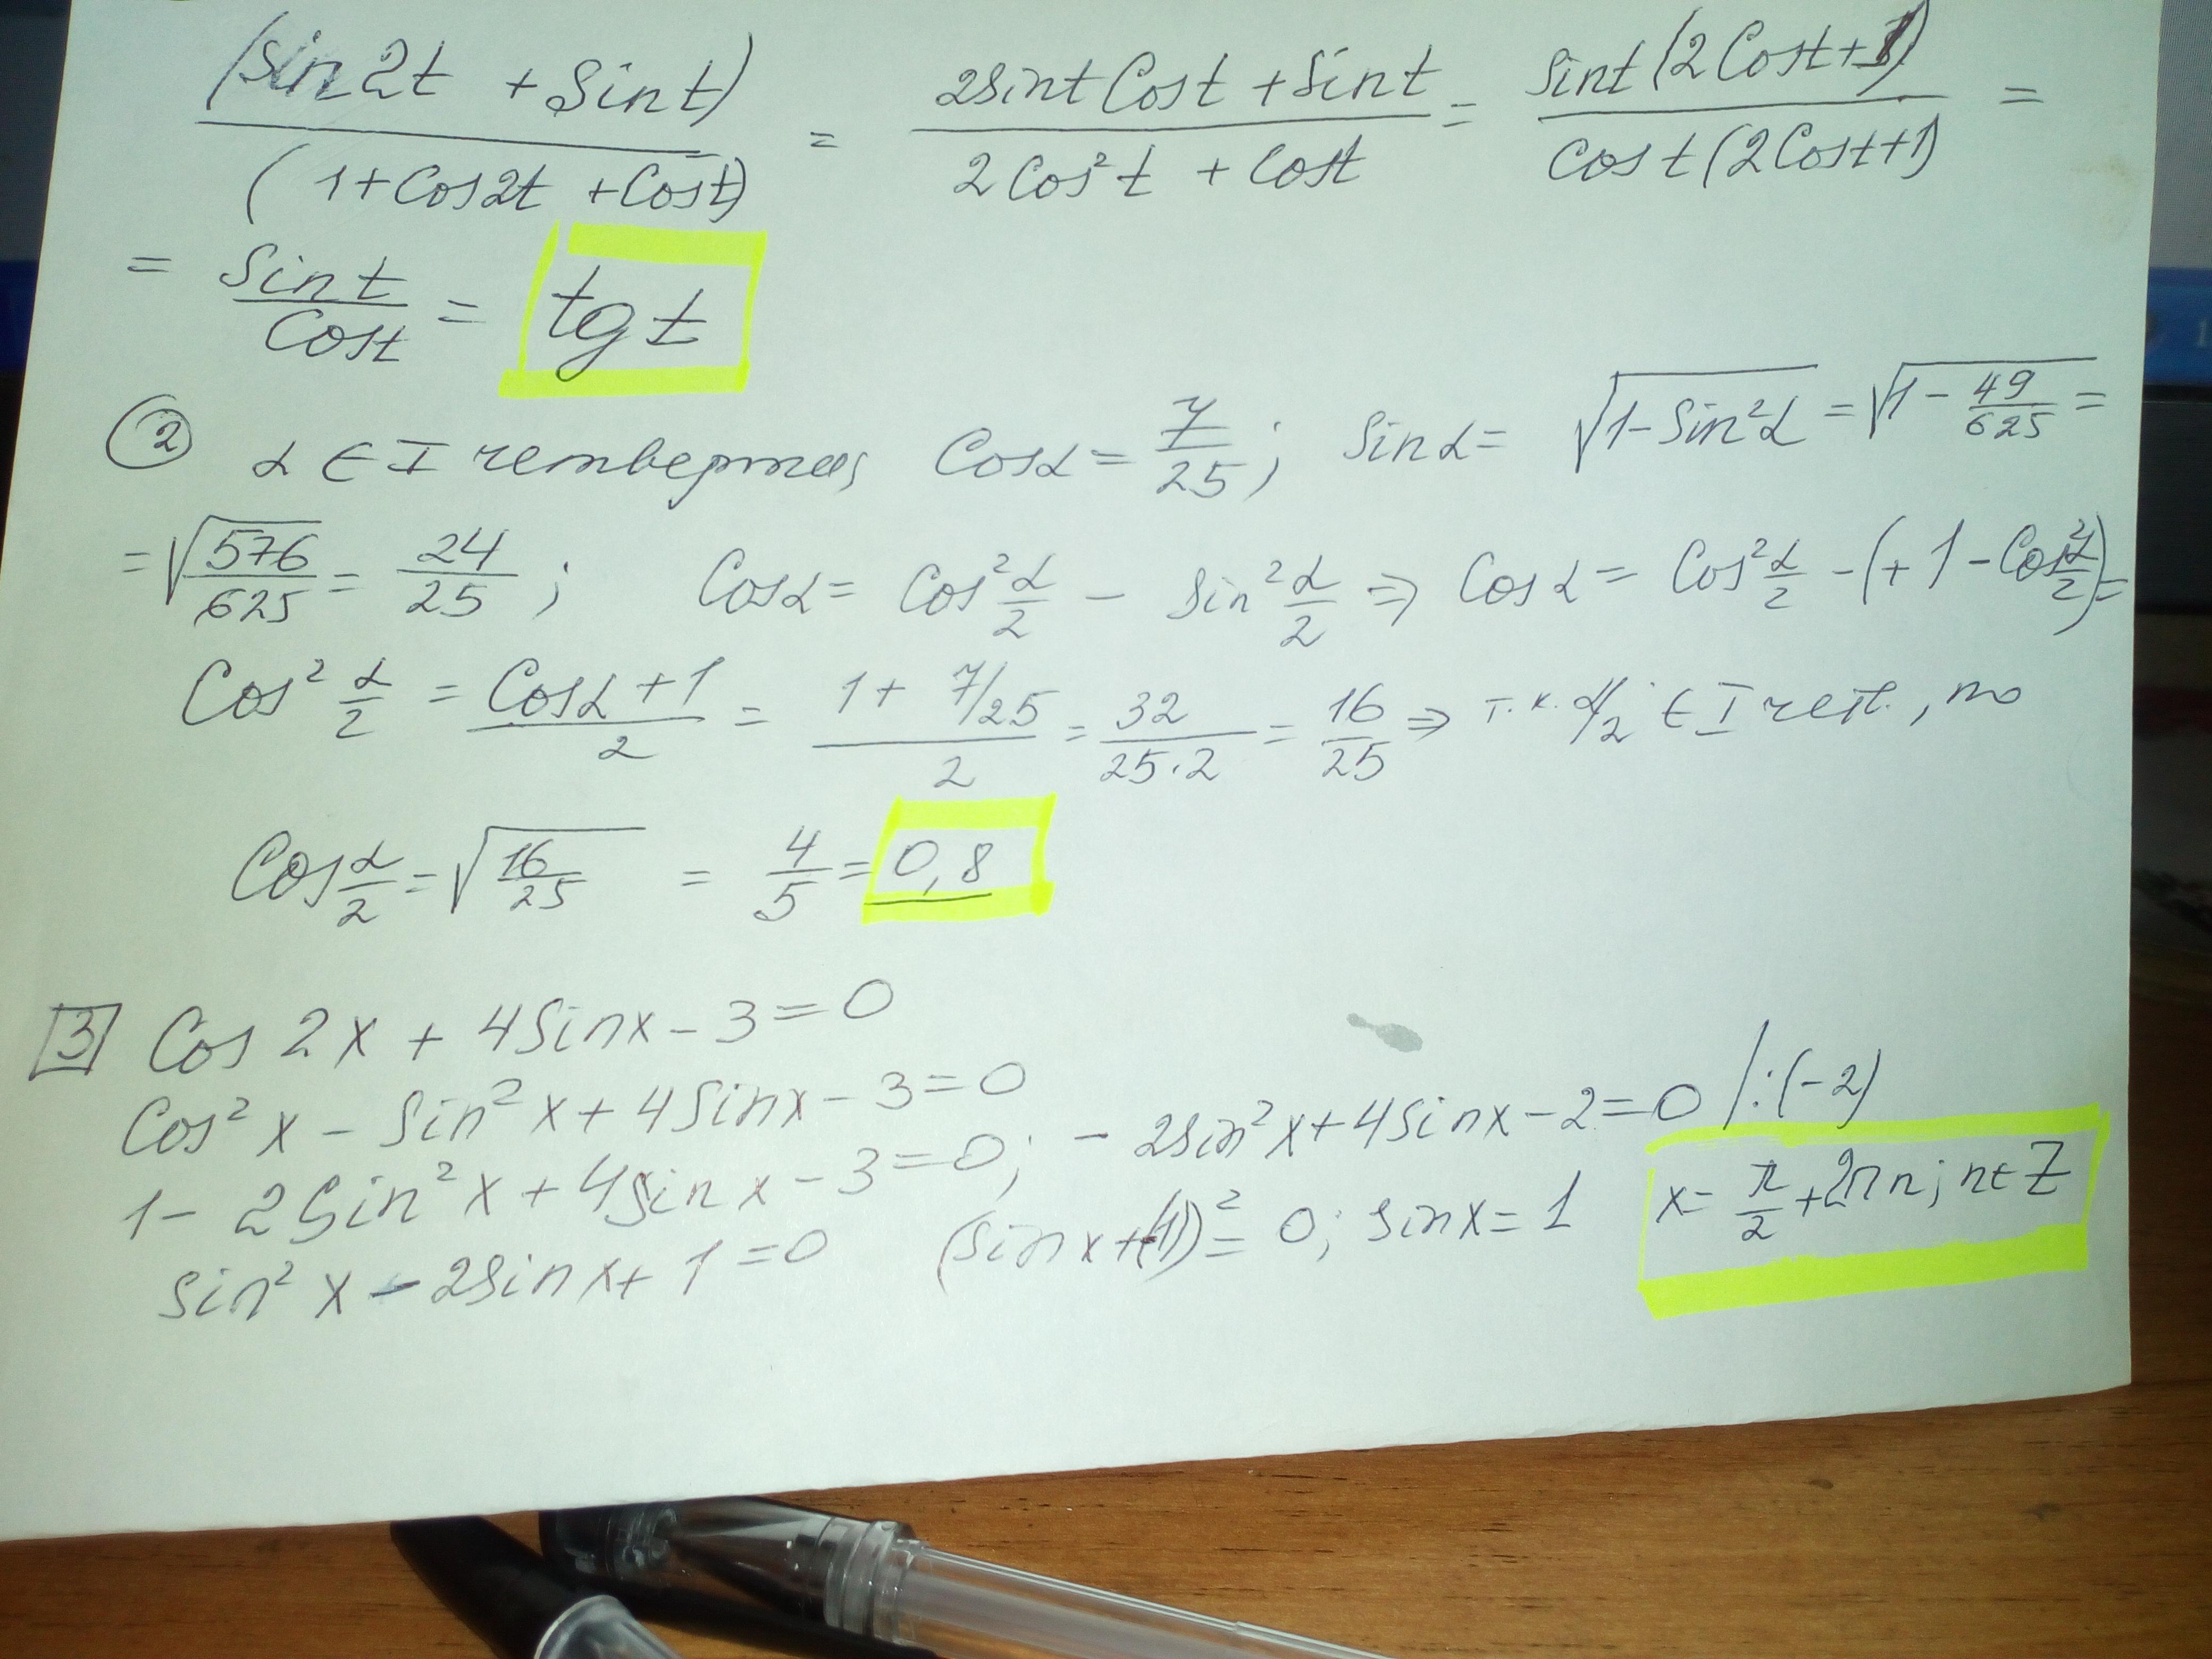 (sin2t + sint) / (1+cos2t + cost) = (2sint cost + sint) / (2cos²t + cost) = sint(2cost+1) / cost(2cost+1) =
= sint / cost = tgt
② α ∈ I четверти, cosα = 7/25; sinα = √(1-sin²α) = √(1 - 49/625) =
= √(576/625) = 24/25; cosα = cos² α/2 - sin² α/2 ⇒ cosα = cos² α/2 - (+1 - cos² α/2) =
cos² α/2 = (cosα+1)/2 = (1+ 7/25)/2 = 32/(25·2) = 16/25 ⇒ т.к. α/2 ∈ I четв., то
cos α/2 = √(16/25) = 4/5 = 0,8
3 cos 2x + 4sinx - 3 = 0
cos² x - sin² x + 4sinx - 3 = 0
1 - 2sin² x + 4sinx - 3 = 0; - 2sin² x + 4sinx - 2 = 0 /:(-2)
sin² x - 2sinx + 1 = 0 (sinx+(-1))² = 0; sinx = 1 x = π/2 + 2πn; n∈Z